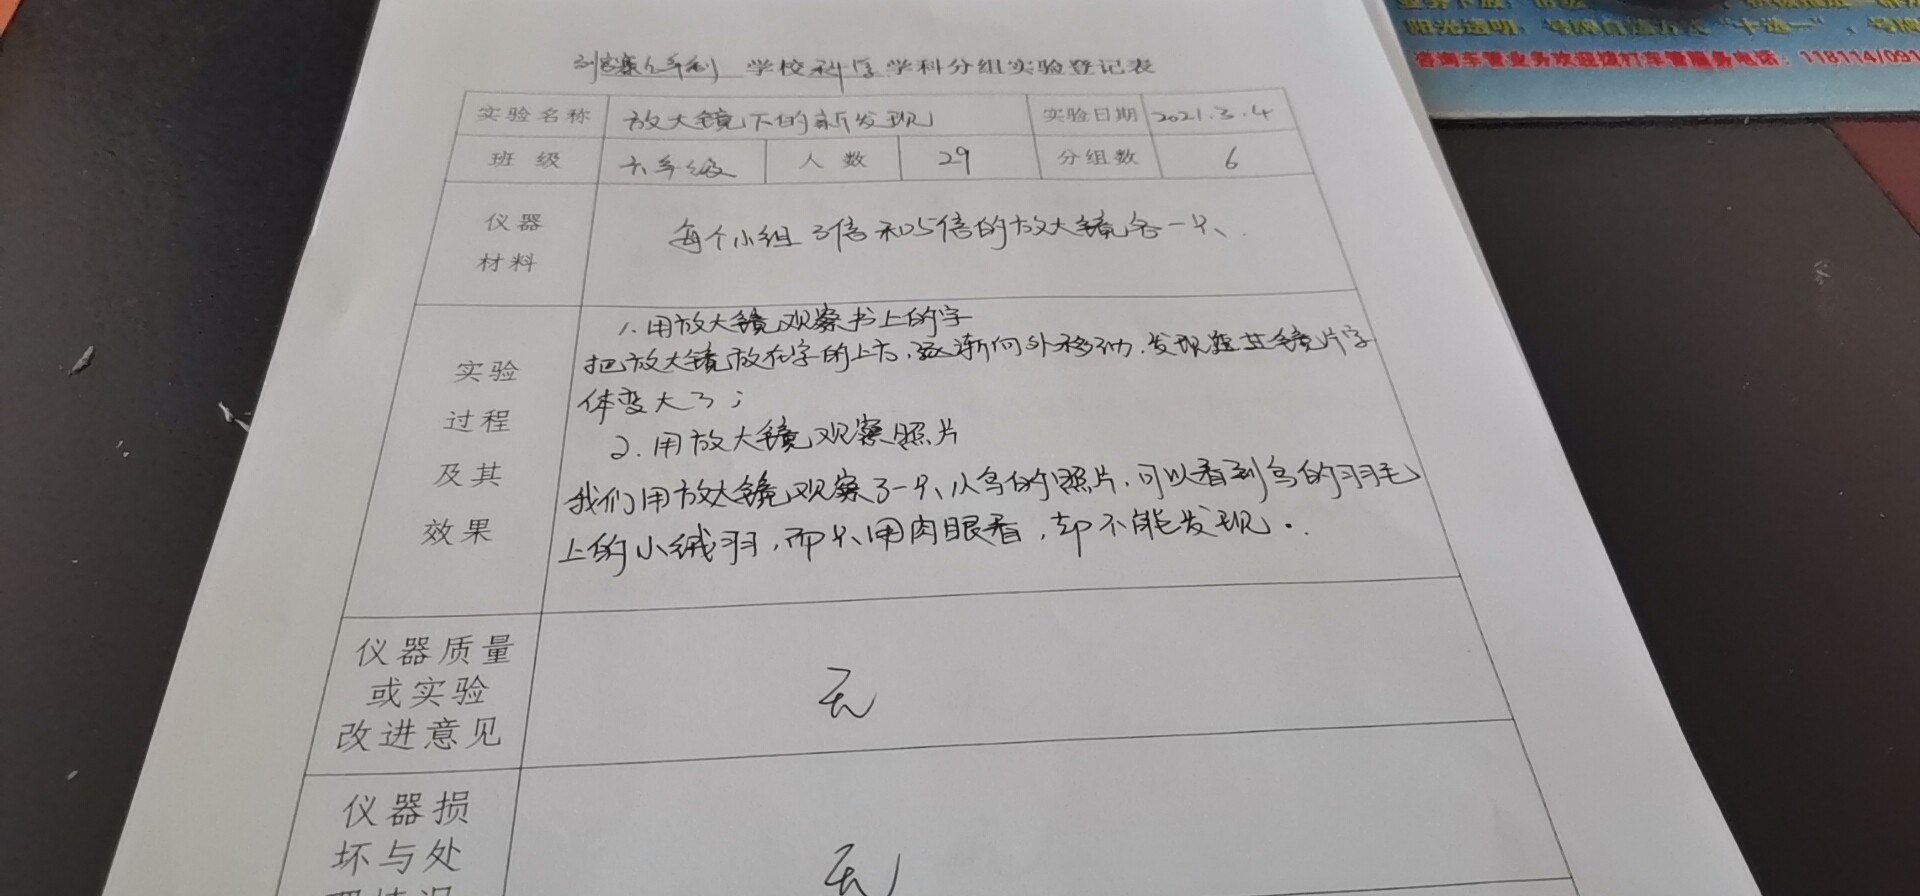 学校科学学科分组实验登记表
实验名称 放大镜下的新发现 实验日期 2021.3.4
班级 六年级 人数 29 分组数 6
仪器
材料
每个小组3倍和5倍的放大镜各一只.
实验
过程
及其
效果
1.用放大镜观察书上的字
把放大镜放在字的上方,逐渐向外移动,发现 镜片字
体变大了;
2.用放大镜观察照片
我们用放大镜观察了一只小鸟的照片,可以看到鸟的羽毛
上的小绒羽,而只用肉眼看,却不能发现.
仪器质量
或实验
改进意见
无
仪器损
坏与处
无
咨询车管业务欢迎拨打车管服务电话:118114/091